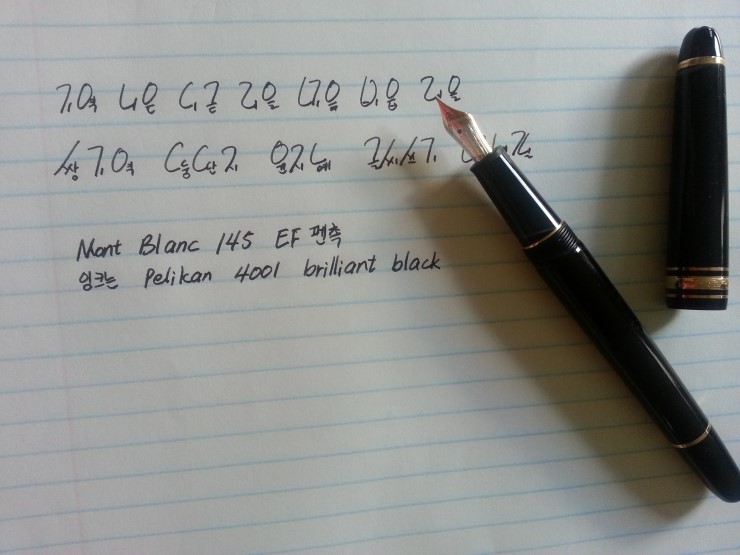 기역 니은 디귿 리을 미음 비읍 리을
쌍기역 글씨쓰기
Mont Blanc 145 EF 펜촉
잉크는 Pelikan 4001 brilliant black